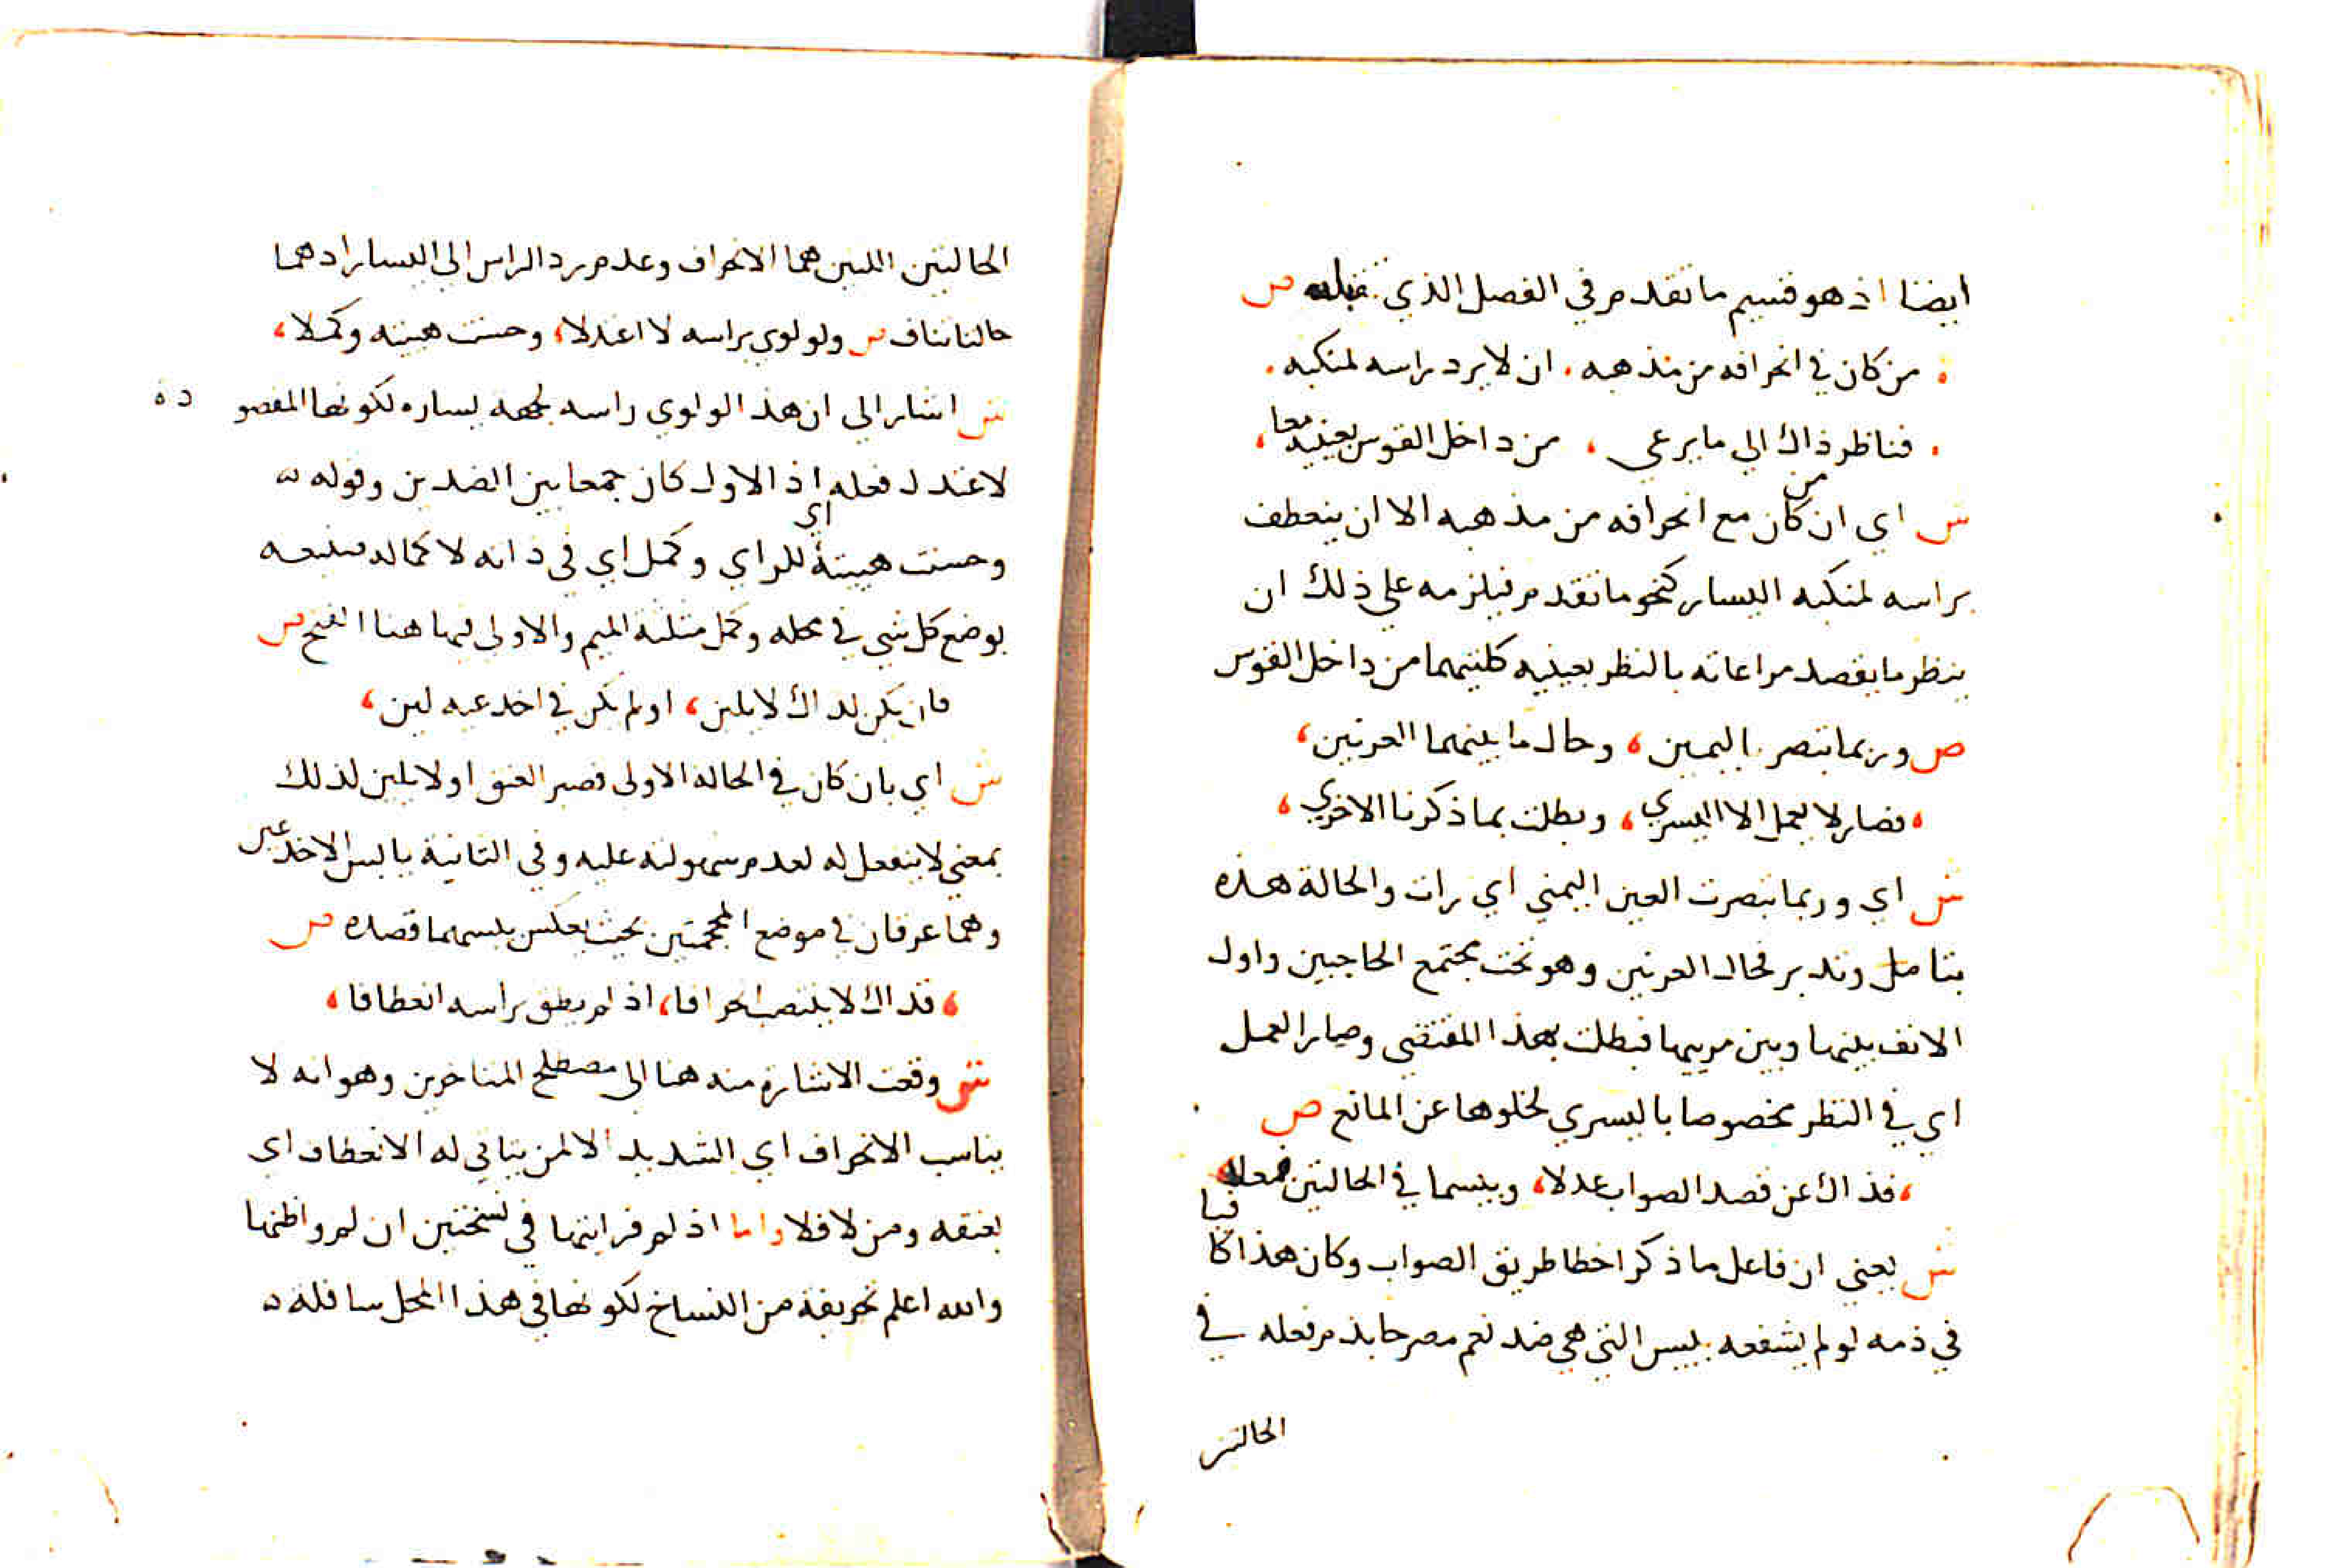 ايضا اذ هو قسيم ما تقدم في الفصل الذي قبله ص
من كان في انحرافه من مذهبه . ان لا يرد راسه لمنكبه .
فناظر ذاك الى ما يرعي ، من داخل القوس بعينيه معا ،
ش اي ان من كان مع انحرافه من مذهبه الا ان ينعطف
براسه لمنكبه اليسار كنحو ما تقدم فيلزمه على ذلك ان
ينظر ما يقصد مراعاته بالنظر بعينيه كلتيهما من داخل القوس
ص وربما تبصر باليمين ، وحال ما بينهما العرنين ،
، فصار لا يعمل الا اليسري ، وبطلت بما ذكرنا الاخري ،
ش اي وربما تبصرت العين اليمني اي رات والحالة هذه
بتامل وتدبر فحال العرنين وهو تحت مجتمع الحاجبين واول
الانف بينها وبين مرييها فبطلت بهذا المقتضي وصار العمل
اي في النظر مخصوصا باليسري لخلوها عن المانع ص
، فذاك عن قصد الصواب عدلا ، وبيسما في الحالتين فعله
ش يعني ان فاعل ما ذكر اخطا طريق الصواب وكان هذا كافيا
في ذمه لو لم يشفعه بيس التي هي ضد نعم مصرحا بذم فعله في
الحالتين
الحالتين اللتين هما الانحراف وعدم رد الراس الى اليسار اذ هما
حالتا تناف ص ولو لوي براسه لاعتدلا ، وحسنت هيئته وكملا ،
ش اشار الى ان هذا لو لوي راسه لجهه يساره لكونها المقصوده
لاعتدل فعله اذ الاول كان جمعا بين الضدين وقوله
وحسنت هيئته اي للراي وكمل اي في ذاته لا كماله صنيعه
بوضع كل شي في محله وكمل مثلثة الميم والاولى فيها هنا الفتح ص
فان يكن لذاك لا يلين ، او لم يكن في اخدعيه لين ،
ش اي بان كان في الحالة الاولى قصير العنق او لا يلين لذلك
بمعني لا ينفعل له لعدم سهولته عليه وفي الثانية يابس الاخدعين
وهما عرقان في موضع المحجمتين بحيث يعكس يبسهما قصده ص
، فذاك لا ينتصب انحرافا ، اذ لم يطق براسه انعطافا ،
ش وقعت الاشارة منه هنا الى مصطلح المتاخرين وهو انه لا
يناسب الانحراف اي الشديد الا لمن يتاتي له الانعطاف اي
بعنقه ومن لا فلا واما اذ لم فرايتها في نسختين ان لم واظنها
والله اعلم تحريفة من النساخ لكونها في هذا المحل سافلة